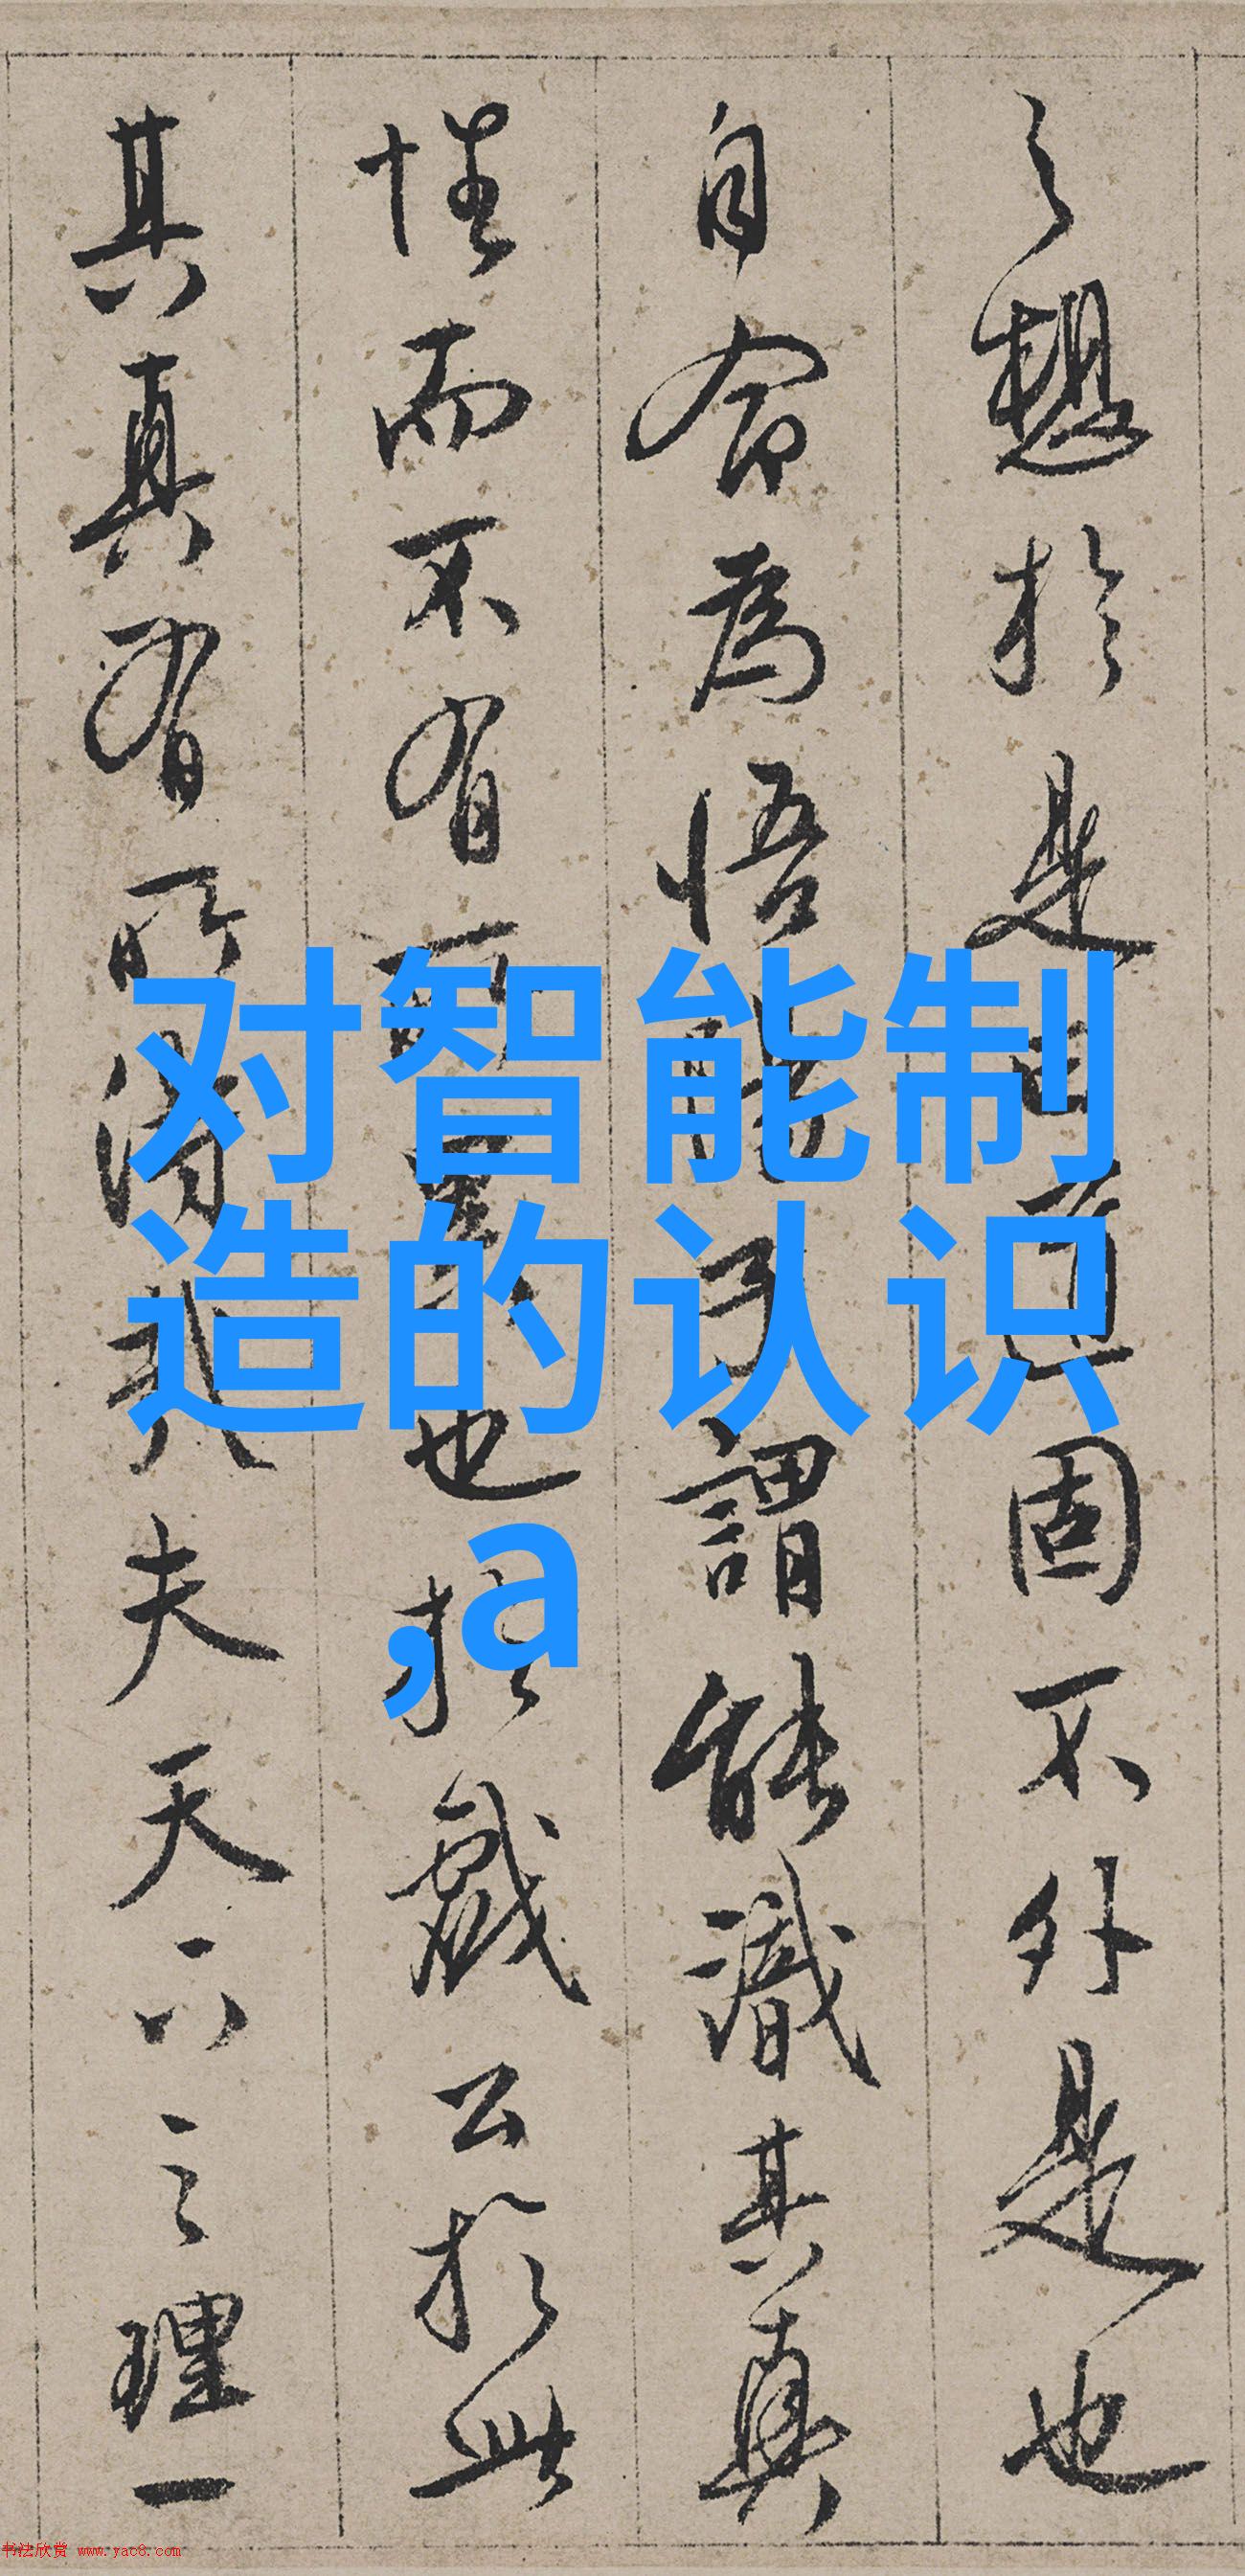 之想於是
固不外是也
自命為悟
謂能識其真
性而不有
也 於戲公於此
其真有所得
夫天下之理一
对智能制
造的认识
,a
书法欣赏 www.yac8.com